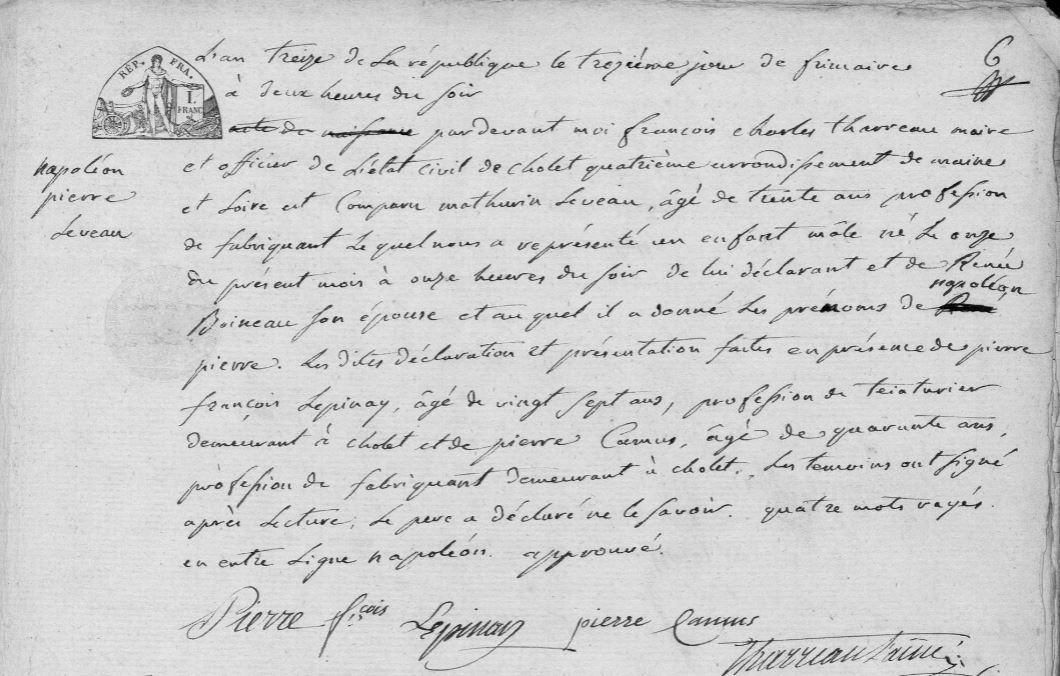 L'an treize de La république le trezième jour de frimaire
6
à deux heures du soir
REP. FRA.
1. FRANC
acte de naissance pardevant moi françois charles Tharreau maire
et officier de L'état civil de cholet quatrième arrondissement de maine
napoléon
pierre
Leveau
et Loire est Comparu mathurin Leveau, âgé de trente ans profession
de fabriquant Lequel nous a représenté un enfant mâle né Le onze
du présent mois à onze heures du soir de lui déclarant et de Renée
napoléon
Boineau son épouse et auquel il a donné Les prénoms de
pierre. Les dites déclaration et présentation faites en présence de pierre
françois Lepinay, âgé de vingt sept ans, profession de teinturier
demeurant à cholet et de pierre Camus, âgé de quarante ans,
profession de fabriquant demeurant à cholet. Les temoins ont signé
après Lecture, Le pere a déclaré ne le savoir. quatre mots rayés.
en entre Ligne napoléon. approuvé.
Pierre f.çois Lepinay pierre Camus
Tharreau L'ainé